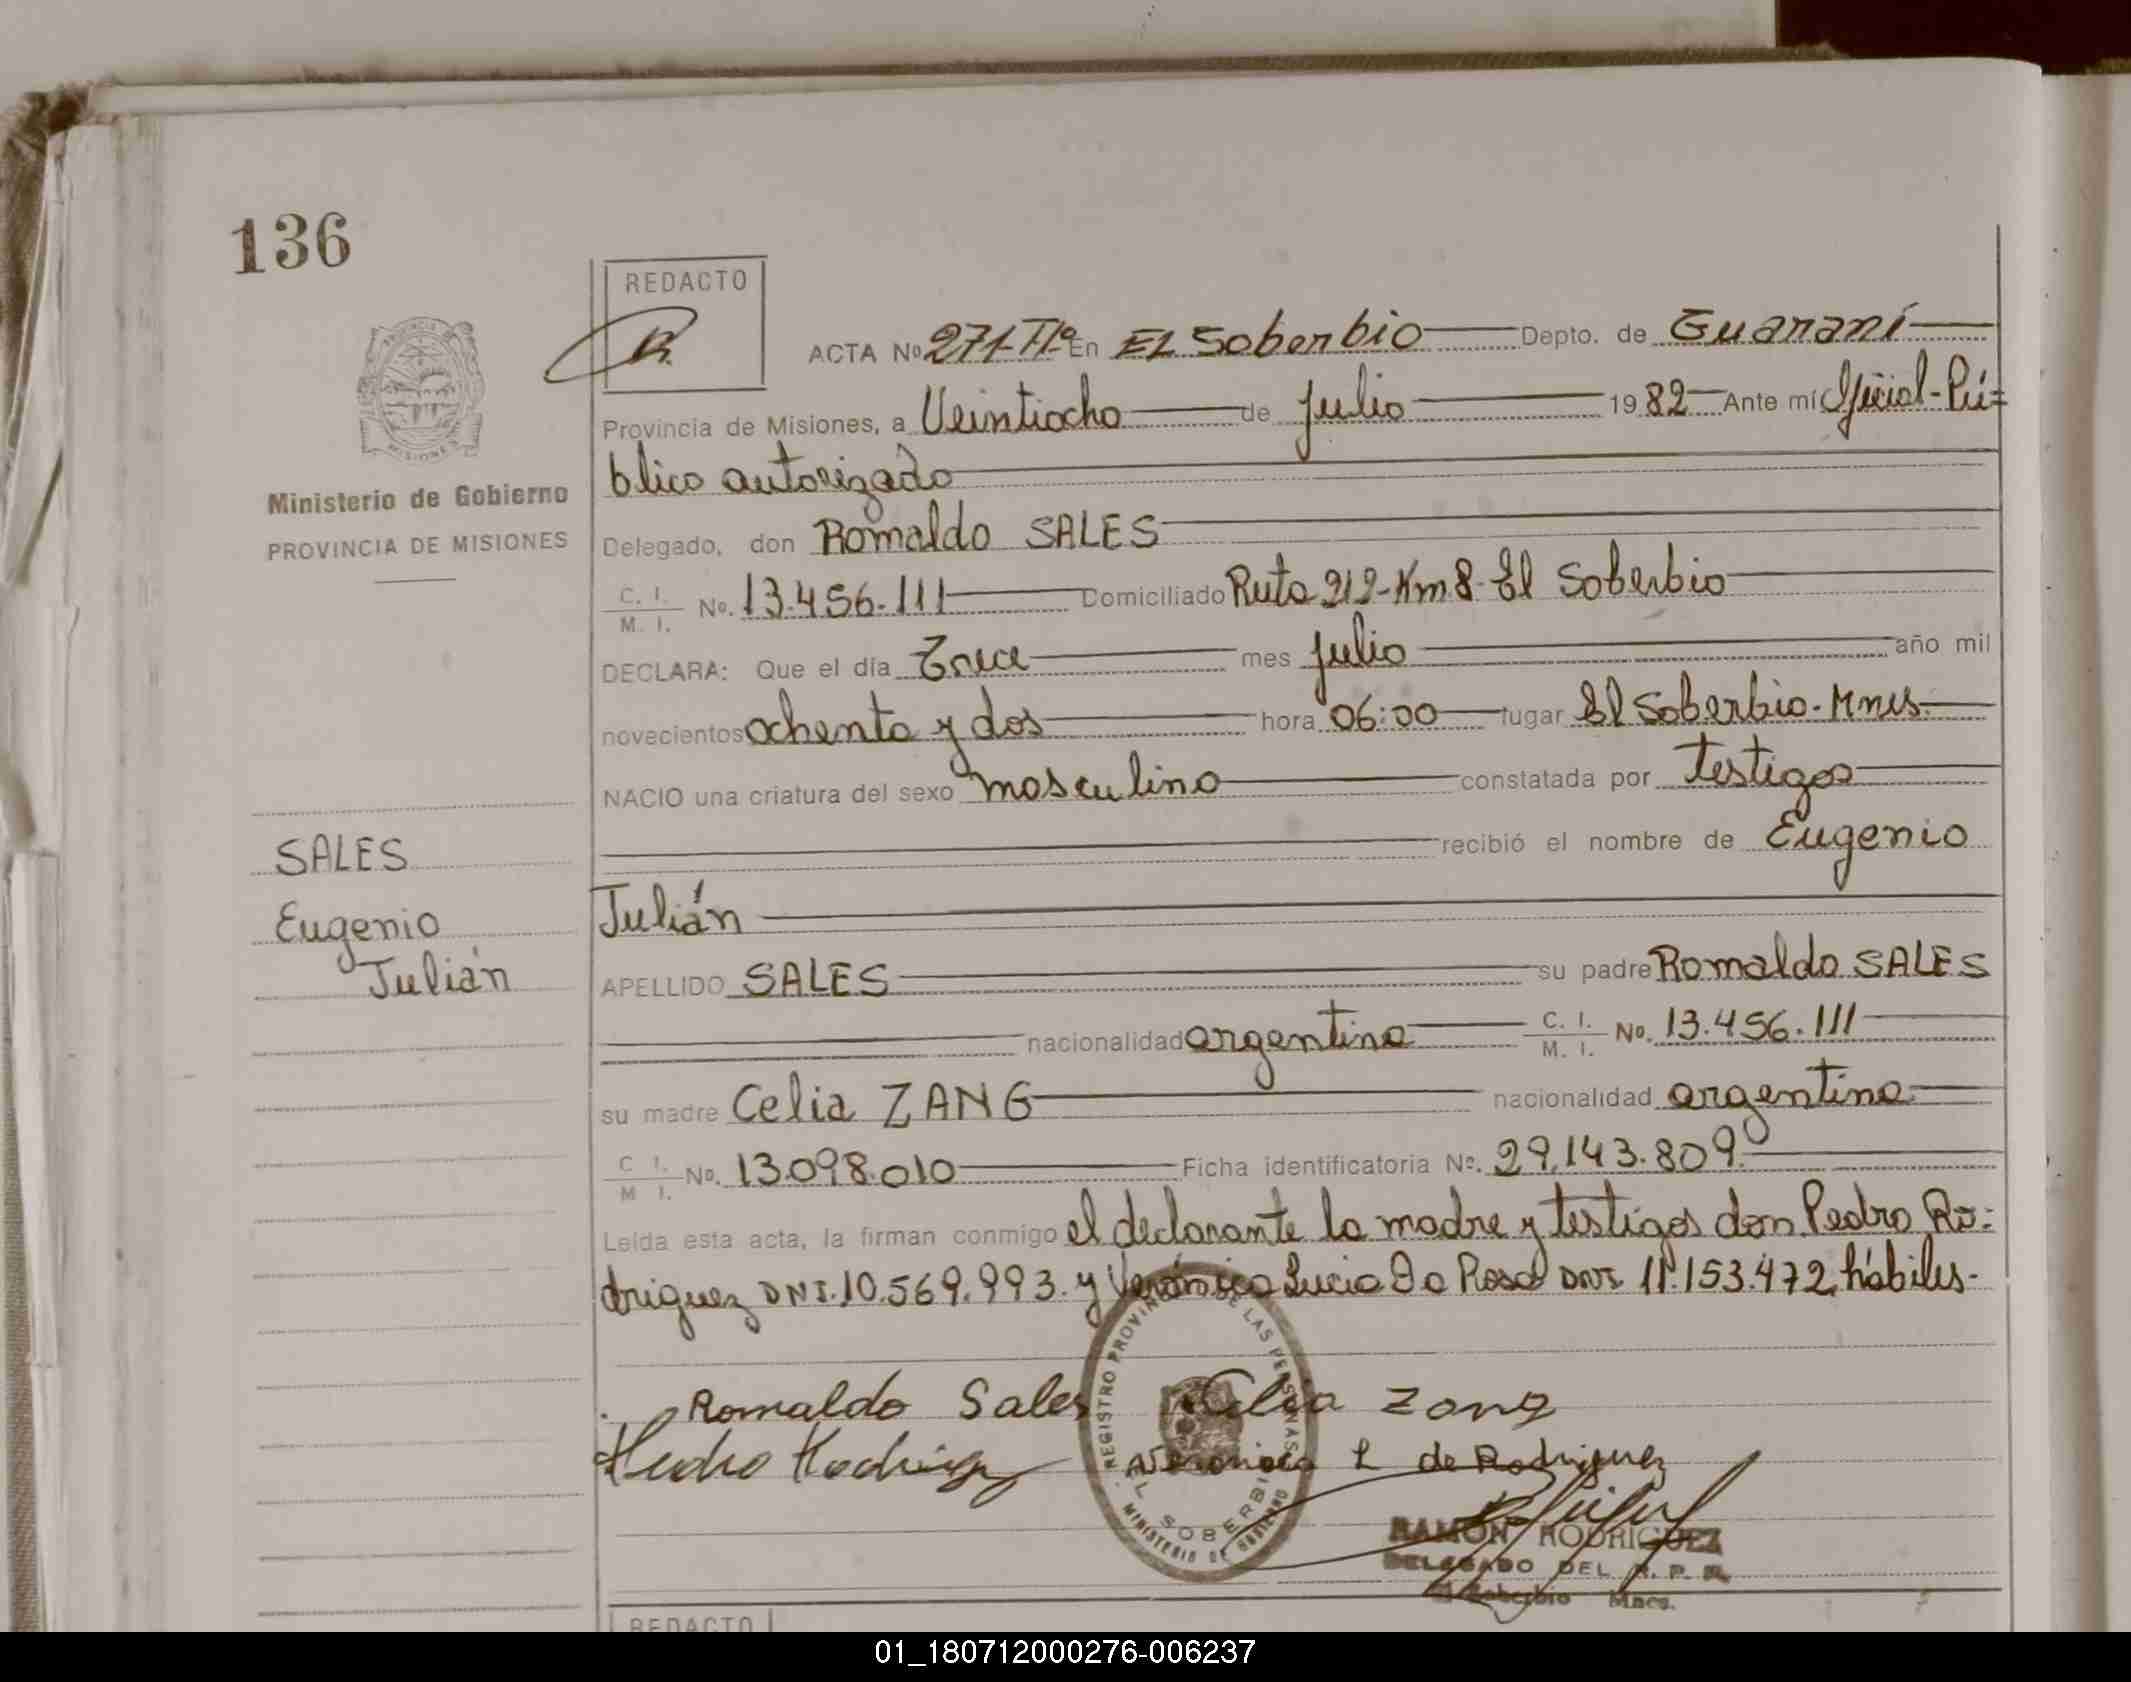 136
REDACTO
ACTA No 271-Tº En EL Soberbio Depto. de Guaraní
Provincia de Misiones, a Veintiocho de julio 1982 Ante mí Oficial-Pú=
blico autorizado
Ministerio de Gobierno
PROVINCIA DE MISIONES
Delegado, don Romaldo SALES
C. I. M. I. No. 13.456.111 Domiciliado Ruta 212-Km 8-El Soberbio
DECLARA: Que el día Trece mes julio año mil
novecientos ochenta y dos hora 06:00 lugar El Soberbio-Mnes.
NACIO una criatura del sexo masculino constatada por testigos
recibió el nombre de Eugenio
Julián
SALES
Eugenio
Julián
APELLIDO SALES su padre Romaldo SALES
nacionalidad argentina C. I. M. I. No. 13.456.111
su madre Celia ZANG nacionalidad argentina
C. I. M. I. No. 13.098.010 Ficha identificatoria Nº. 29.143.809.
Leída esta acta, la firman conmigo el declarante la madre y testigos don Pedro Ro=
driguez DNI. 10.569.993. y Verónica Lucia Da Rosa DNI. 11.153.472, hábiles-
Romaldo Sales Celia Zang
Pedro Rodriguez Veronica L de Rodriguez
REGISTRO PROVINCIAL DE LAS PERSONAS
EL SOBERBIO
MINISTERIO DE GOBIERNO
RAMON RODRIGUEZ
DELEGADO DEL R. P. P.
El Soberbio Mnes.
REDACTO
01_180712000276-006237